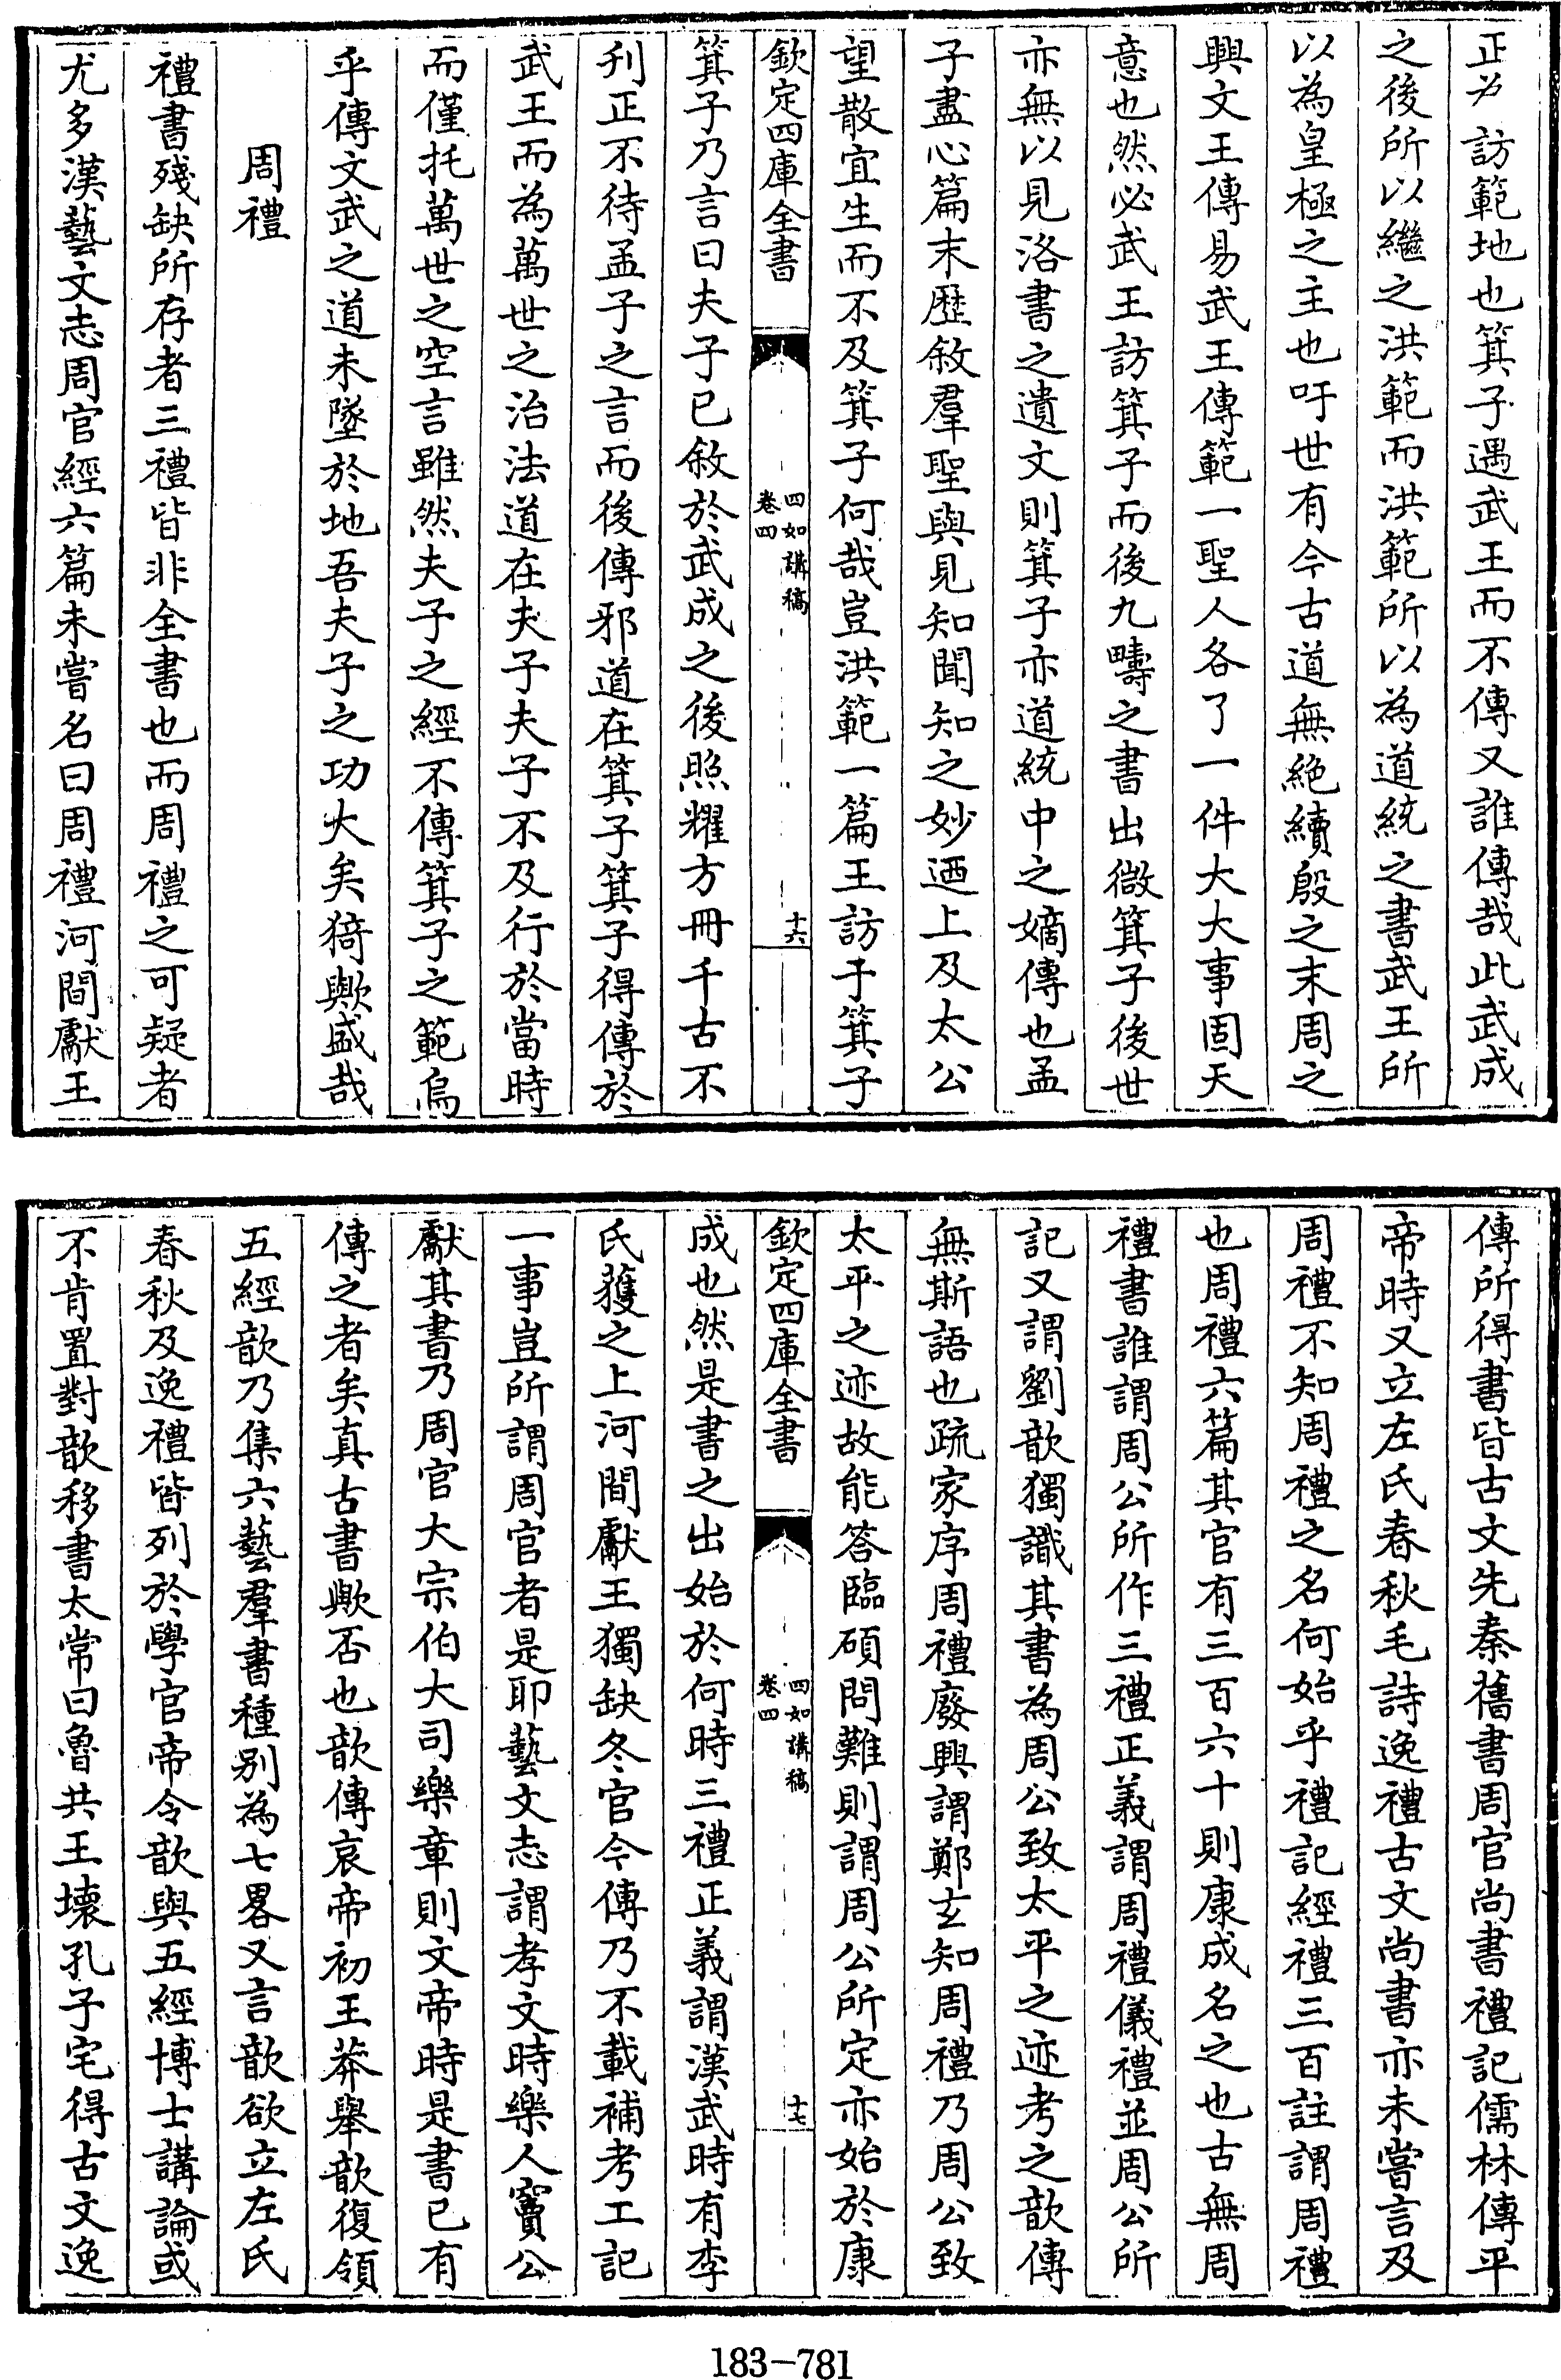 正為訪範地也箕子遇武王而不傳又誰傳哉此武成
之後所以繼之洪範而洪範所以為道統之書武王所
以為皇極之主也吁世有今古道無絶續殷之末周之
興文王傳易武王傳範一聖人各了一件大大事固天
意也然必武王訪箕子而後九疇之書出微箕子後世
亦無以見洛書之遺文則箕子亦道統中之嫡傳也孟
子盡心篇末歴敘羣聖與見知聞知之妙迺上及太公
望散宜生而不及箕子何哉豈洪範一篇王訪于箕子
欽定四庫全書
四如講稿
卷四
十六
箕子乃言曰夫子已敘於武成之後照耀方冊千古不
刋正不待孟子之言而後傳邪道在箕子箕子得傳於
武王而為萬世之治法道在夫子夫子不及行於當時
而僅托萬世之空言雖然夫子之經不傳箕子之範烏
乎傳文武之道未墜於地吾夫子之功大矣猗歟盛哉
周禮
禮書殘缺所存者三禮皆非全書也而周禮之可疑者
尤多漢藝文志周官經六篇未嘗名曰周禮河間獻王
傳所得書皆古文先秦舊書周官尚書禮記儒林傳平
帝時又立左氏春秋毛詩逸禮古文尚書亦未嘗言及
周禮不知周禮之名何始乎禮記經禮三百註謂周禮
也周禮六篇其官有三百六十則康成名之也古無周
禮書誰謂周公所作三禮正義謂周禮儀禮並周公所
記又謂劉歆獨識其書為周公致太平之迹考之歆傳
無斯語也疏家序周禮廢興謂鄭玄知周禮乃周公致
太平之迹故能答臨碩問難則謂周公所定亦始於康
欽定四庫全書
四如講稿
卷四
十七
成也然是書之出始於何時三禮正義謂漢武時有李
氏獲之上河間獻王獨缺冬官今傳乃不載補考工記
一事豈所謂周官者是耶藝文志謂孝文時樂人竇公
獻其書乃周官大宗伯大司樂章則文帝時是書已有
傳之者矣真古書歟否也歆傳哀帝初王莽舉歆復領
五經歆乃集六藝羣書種别為七畧又言歆欲立左氏
春秋及逸禮皆列於學官帝令歆與五經博士講論或
不肯置對歆移書太常曰魯共王壞孔子宅得古文逸
183-781